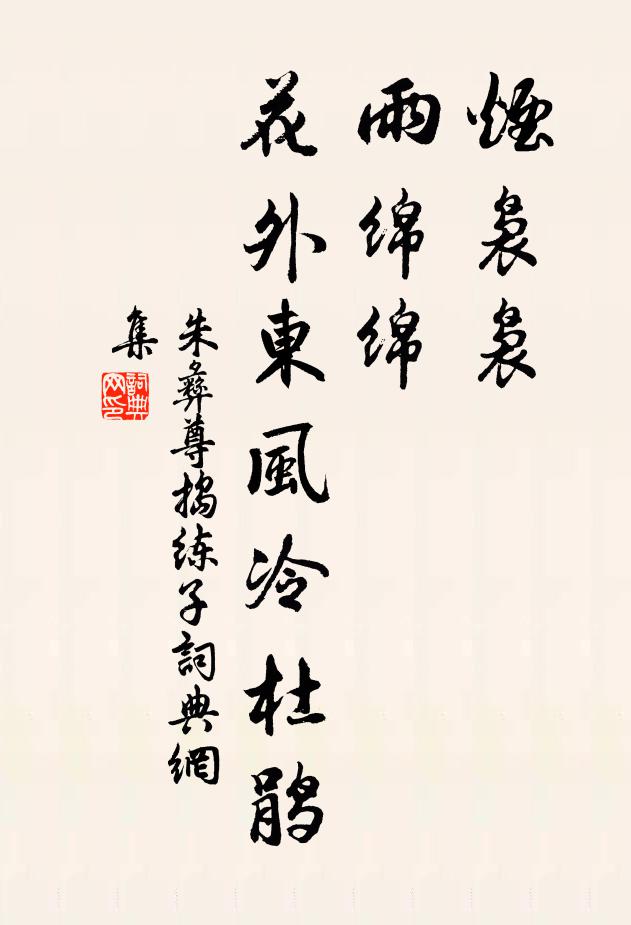 煙裊裊
雨绵绵
花外東風冷杜鹃
朱彝尊搗练子詞典網
集
詞典网印